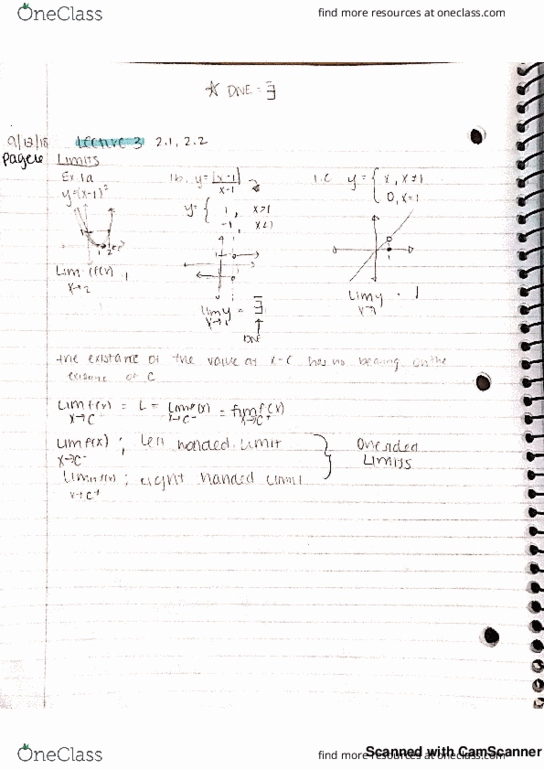 OneClass
find more resources at oneclass.com
☆ DNE = ∃̅
9/13/18 Lecture 3 2.1, 2.2
page 6 Limits
Ex. 1a
y=(x-1)²
1b. y= |x-1| / x-1
y= { 1, x>1
-1, x<1
1.c y= { x, x≠1
0, x=1
Lim f(x) = 1
x→2
lim y = ∃̅
x→1
DNE
Lim y = 1
x→1
the existance of the value at x=c has no bearing on the
existance of c
Lim f(x) = L = Lim f(x) = Lim f(x)
x→c x→c⁻ x→c⁺
Lim f(x) ; left handed limit
x→c⁻
Lim f(x) ; right handed limit
x→c⁺
One sided
Limits
OneClass
find more resources at oneclass.com
Scanned with CamScanner